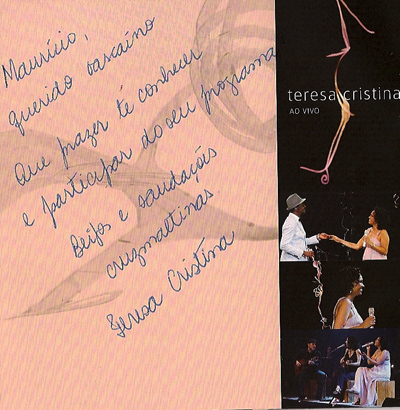 Maurício,
querido vascaíno
Que prazer te conhecer
e participar do seu programa
Beijos e saudações
cruzmaltinas
Teresa Cristina
teresa cristina
AO VIVO